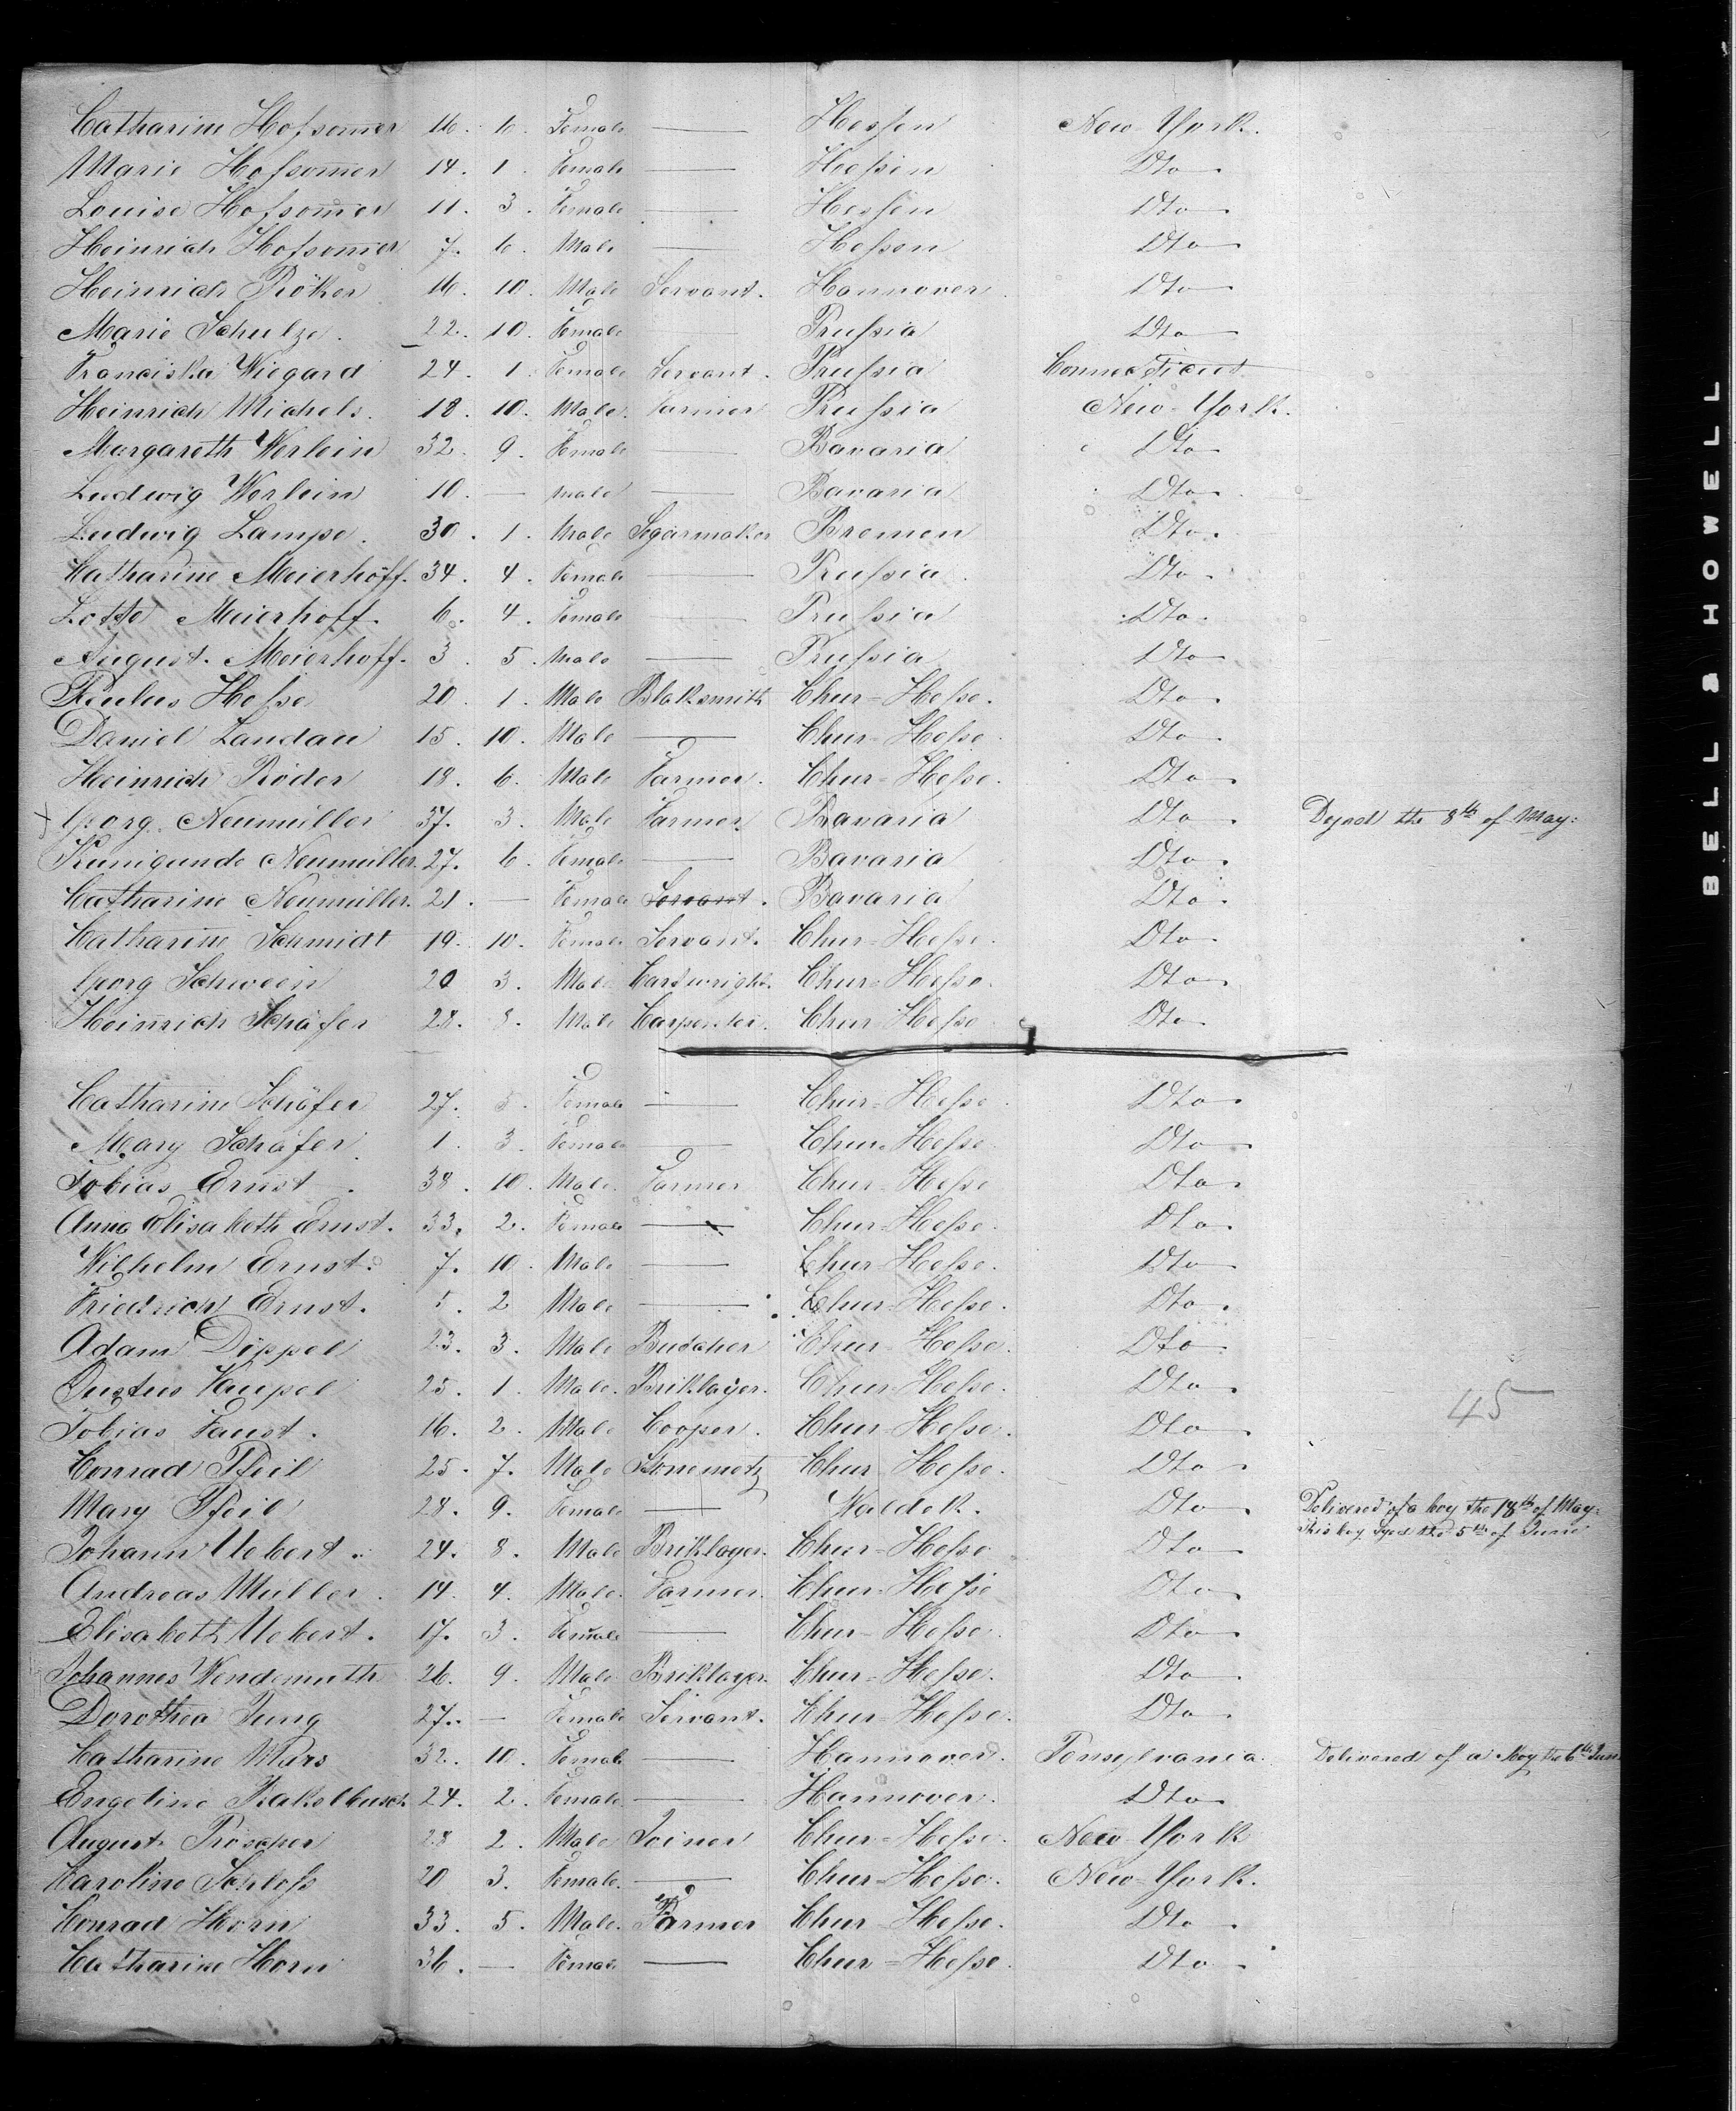 Catharine Hofsomer 16. 6. Female — Hessen New-York.
Marie Hofsomer 14. 1. Female — Hessen Dto
Louise Hofsomer 11. 3. Female — Hessen Dto
Heinrich Hofsomer 7. 6. Male — Hessen Dto
Heinrich Röker 16. 10. Male Servant. Hannover Dto
Marie Schulze. 22. 10. Female — Prussia Dto
Franciska Wiegard 24. 1. Female Servant. Prussia Connecticut
Heinrich Michels. 18. 10. Male. Farmer Prussia New-York.
Margareth Werlein 32. 9. Female — Bavaria Dto
Ludwig Werlein 10. — Male — Bavaria Dto.
Ludwig Lampe. 30. 1. Male Segarmaker Bremen Dto.
Catharine Meierhoff. 34. 4. Female — Prussia Dto.
Lotte Meierhoff. 6. 4. Female — Prussia Dto.
August. Meierhoff. 3. 5. Male — Prussia Dto
Hesse 20. 1. Male Blaksmith Chur-Hesse. Dto
Daniel Landau 15. 10. Male — Chur-Hesse. Dto
Heinrich Röder 18. 6. Male Farmer. Chur-Hesse. Dto
Georg Neumüller 37. 3. Male Farmer. Bavaria Dto. Dyed the 8th of May:
Kunigunde Neumüller. 27. 6. Female — Bavaria Dto.
Catharine Neumüller. 21. — Female Servant. Bavaria Dto.
Catharine Schmidt 19. 10. Female Servant. Chur-Hesse. Dto
Georg Schween 20 3. Male Cartwright. Chur-Hesse. Dto
Heinrich Schäfer 28. 8. Male Carpenter. Chur-Hesse Dto
Catharine Schäfer 27. 5. Female — Chur-Hesse. Dto
Mary Schäfer 1. 3. Female — Chur-Hesse. Dto
Tobias Ernst. 38. 10. Male. Farmer Chur-Hesse Dto
Anna Elisabeth Ernst. 33. 2. Female — Chur-Hesse. Dto.
Wilhelm Ernst. 7. 10. Male — Chur-Hesse. Dto
Friedrich Ernst. 5. 2 Male — Chur-Hesse. Dto.
Adam Dippel 23. 3. Male Butcher Chur-Hesse. Dto
Justus Vaupel 25. 1. Male. Briklayer. Chur-Hesse. Dto
45
Tobias Faust. 16. 2. Male Cooper. Chur-Hesse. Dto
Conrad Pfeil 25. 7. Male Stonemetz Chur-Hesse. Dto
Mary Pfeil 28. 9. Female — Waldek. Dto Delivered of a boy the 18th of May.
This boy dyed the 5th of June
Johann Uebert. 24. 8. Male Briklayer. Chur-Hesse Dto
Andreas Müller. 14. 4. Male. Farmer. Chur-Hesse Dto
Elisabeth Uebert. 17. 3. Female — Chur-Hesse. Dto
Johannes Wendemuth 26. 9. Male Briklayer. Chur-Hesse. Dto
Dorothea Jung 27. — Female Servant. Chur-Hesse. Dto
Catharine Murs 32. 10. Female — Hannover. Pensylvania. Delivered of a Boy the 6th June
Engeline Rakelbusch 24. 2. Female. — Hannover. Dto
August. Pröscher 28 2. Male Joiner Chur-Hesse. New-York
Karoline Schloss 20 3. Female. — Chur-Hesse. New-York.
Conrad Horn 33. 5. Male. Farmer Chur-Hesse. Dto.
Catharine Horn 36. — Female — Chur-Hesse. Dto.
BELL & HOWELL